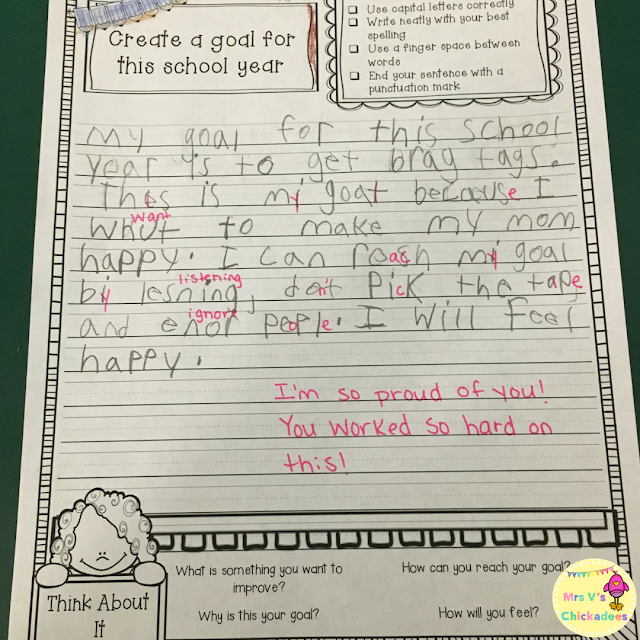 Create a goal for
this school year
Use capital letters correctly
Write neatly with your best
spelling
Use a finger space between
words
End your sentence with a
punctuation mark
my goal for this school
year is to get brag tags.
This is my goal because I
want
whut to make my mom
happy. I can reach my goal
listening
by lesning, don't pick the tape
ignore
and enor people. I will feel
happy.
I'm so proud of you!
You worked so hard on
this!
What is something you want to
improve?
How can you reach your goal?
Why is this your goal?
How will you feel?
Think About
It
Mrs V's
Chickadees